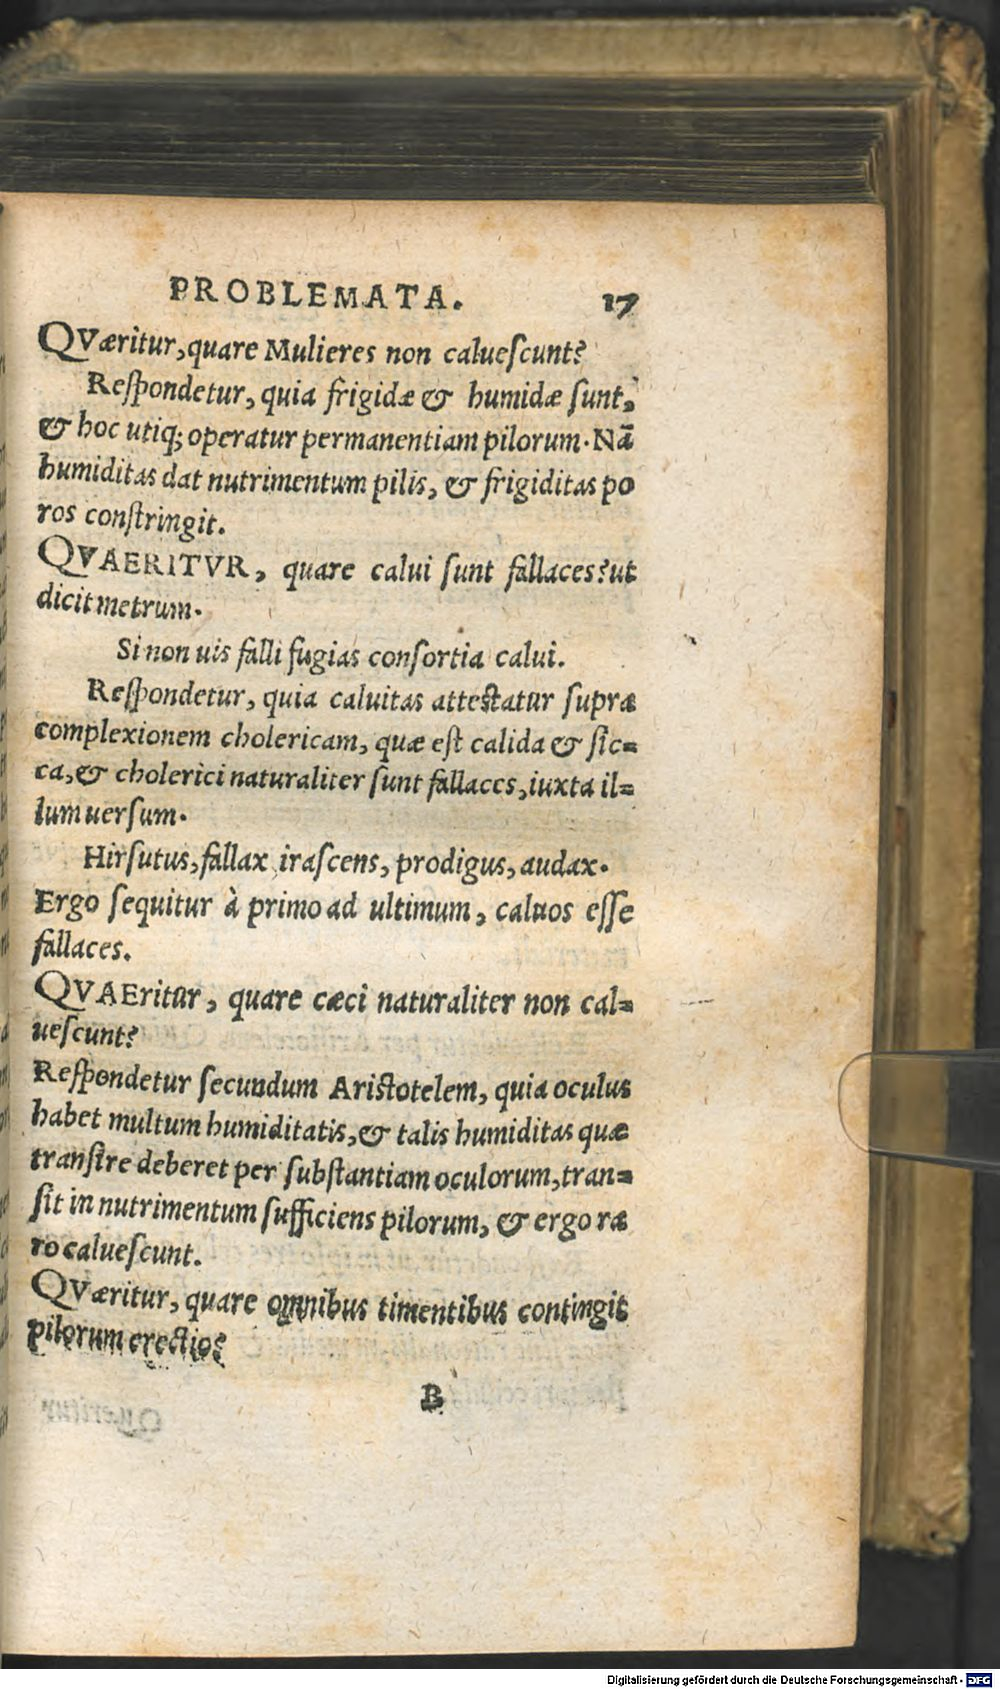 PROBLEMATA. 17
QVæritur, quare Mulieres non calueſcunt?
Reſpondetur, quia frigidæ & humidæ ſunt,
& hoc utiq; operatur permanentiam pilorum. Nā
humiditas dat nutrimentum pilis, & frigiditas po
ros conſtringit.
QVAERITVR, quare calui ſunt fallaces? ut
dicit metrum.
Si non uis falli fugias conſortia calui.
Reſpondetur, quia caluitas atteſtatur supræ
complexionem cholericam, quæ eſt calida & ſic=
ca, & cholerici naturaliter ſunt fallaces, iuxta il=
lum uerſum.
Hirſutus, fallax iraſcens, prodigus, audax.
Ergo ſequitur à primo ad ultimum, caluos eſſe
fallaces.
QVAEritur, quare cæci naturaliter non cal=
ueſcunt?
Reſpondetur ſecundum Ariſtotelem, quia oculus
habet multum humiditatis, & talis humiditas quæ
tranſire deberet per ſubſtantiam oculorum, tran=
ſit in nutrimentum ſufficiens pilorum, & ergo ræ
ro caluеſcunt.
QVæritur, quare omnibus timentibus contingit
pilorum erectio?
B
Digitalisierung gefördert durch die Deutsche Forschungsgemeinschaft - DFG